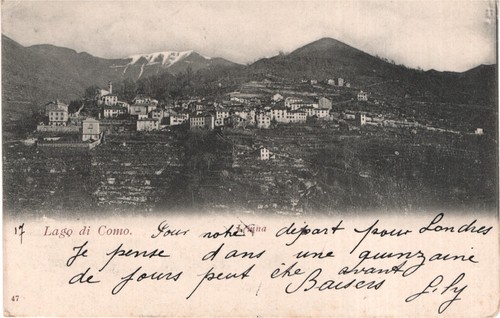 17 Lago di Como. Pour notre depart pour Londres
Je pense dans une quinzaine
de jours peut être avant
Baisers Lily
47